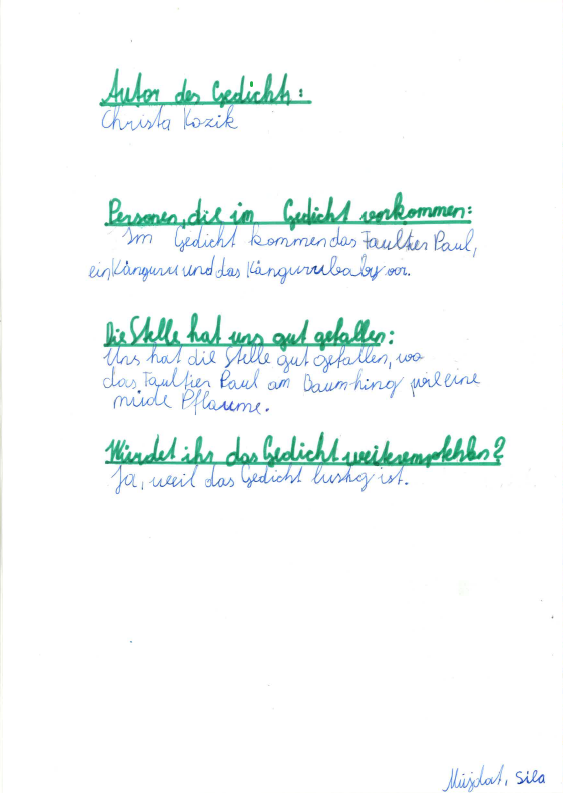 Autor des Gedichts:
Christa Kozik
Personen, die im Gedicht vorkommen:
Im Gedicht kommen das Faultier Paul,
ein Känguru und das Kängurubaby vor.
Die Stelle hat uns gut gefallen:
Uns hat die Stelle gut gefallen, wo
das Faultier Paul am Baum hing wie eine
müde Pflaume.
Würdet ihr das Gedicht weiterempfehlen?
Ja, weil das Gedicht lustig ist.
Müjdat, Sila